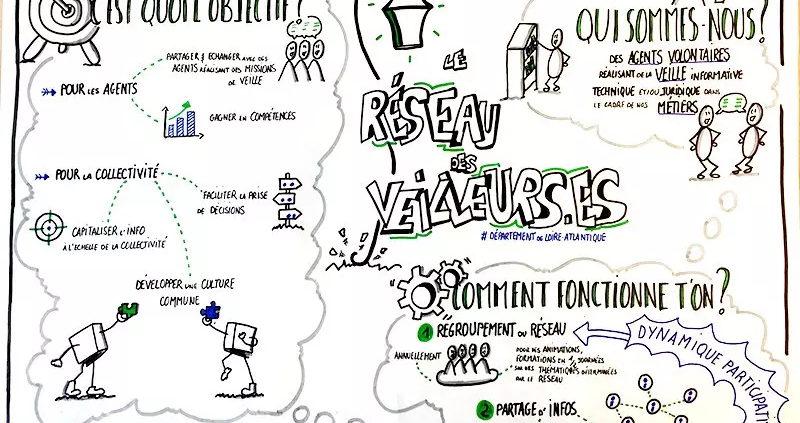 C'EST QUOI L'OBJECTIF?
PARTAGER & ECHANGER AVEC DES
AGENTS RÉALISANT DES MISSIONS
DE VEILLE
POUR LES AGENTS
GAGNER EN COMPÉTENCES
POUR LA COLLECTIVITÉ
FACILITER LA PRISE
DE DÉCISIONS
CAPITALISER L'INFO
À L'ECHELLE DE LA COLLECTIVITÉ
DÉVELOPPER UNE CULTURE
COMMUNE
LE
RÉSEAU
DES
VEILLEURS.ES
# DÉPARTEMENT DE LOIRE-ATLANTIQUE
QUI SOMMES-NOUS?
DES AGENTS VOLONTAIRES
RÉALISANT DE LA VEILLE INFORMATIVE
TECHNIQUE ET/OU JURIDIQUE DANS
LE CADRE DE NOS
MÉTIERS
COMMENT FONCTIONNE T'ON?
1 REGROUPEMENT DU RÉSEAU
ANNUELLEMENT
POUR DES ANIMATIONS,
FORMATIONS EN 1/2 JOURNÉES
SUR DES THÉMATIQUES DÉTERMINÉES
PAR LE RÉSEAU
DYNAMIQUE PARTICIPATI
2 PARTAGE D'INFOS